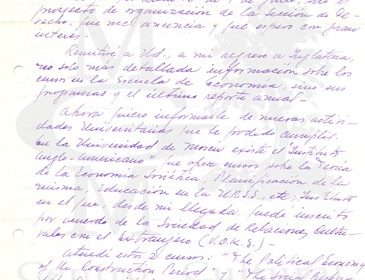 proyecto de organización de la Sección de De-
recho, que me anuncia y que espero con gran
interés.-
Remitiré a Ud., a mi regreso a Inglaterra,
no solo más detallada información sobre los
cursos en la Escuela de Economía, sino sus
programas y el último reporte anual.-
Ahora quiero informarle de nuevas activi-
dades Universitarias que he podido cumplir.
En la Universidad de Moscu existe el "Instituto
Anglo-Americano" que ofrece cursos sobre la Teoría
de la Economía Soviética, Planificación de la
misma, Educación en la U.R.S.S., etc. Instituto
en el que, desde mi llegada, pude inscribirme
por acuerdo de la Sociedad de Relaciones Cultu-
rales con el extranjero (V.O.K.S.)-
Atendí estos 2 cursos: "The Political Economy
of the Construction Period" y "The Social